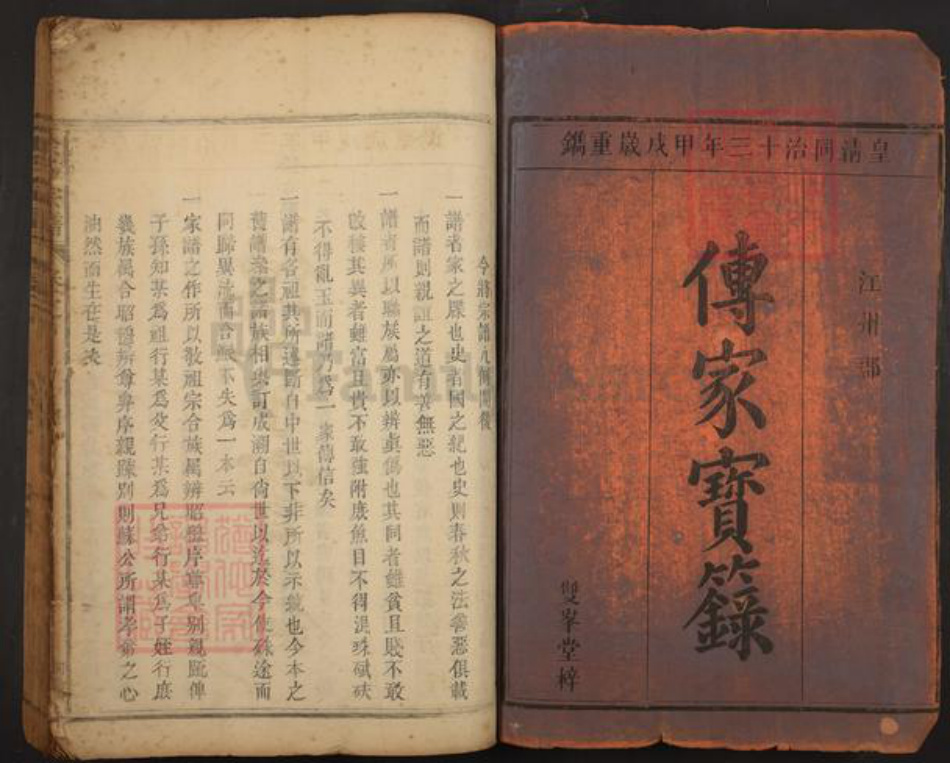 皇清同治十三年甲戌歲重鐫
江州郡
傳家寶籙
雙峯堂梓
今將宗譜凡例開後
一譜者家之牒也史者國之紀也史則春秋之法善惡俱載
而譜則親親之道有善無惡
一譜者所以聯族屬亦以辨真偽也其同者雖貧且賤不敢
改棄其異者雖富且貴不敢強附庶魚目不得混珠碔砆
不得亂玉而譜乃為一家傳信矣
一譜有各祖其所遷斷自中世以下非所以示親也今本之
舊譜叅之諸族相與訂成溯自尚世以迄於今使殊途而
同歸異流而合派不失為一本云
一家譜之作所以敬祖宗合族属辨昭穆序尊卑别親踈俾
子孫知某為祖行某為父行某為兄弟行某為子姪行庶
幾族属合昭穆辨尊卑序親踈别則蘇公所謂孝弟之心
油然而生在是矣